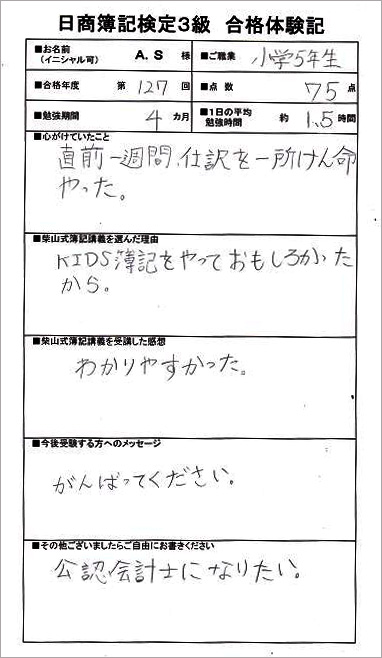 日商簿記検定3級 合格体験記
■お名前
(イニシャル可)
A.S 様
■ご職業 小学5年生
■合格年度 第 127 回
■点数 75 点
■勉強期間 4 カ月
■1日の平均
勉強時間 約 1.5 時間
■心がけていたこと
直前一週間、仕訳を一所けん命
やった。
■柴山式簿記講義を選んだ理由
KIDS簿記をやっておもしろかった
から。
■柴山式簿記講義を受講した感想
わかりやすかった。
■今後受験する方へのメッセージ
がんばってください。
■その他ございましたらご自由にお書きください
公認会計士になりたい。